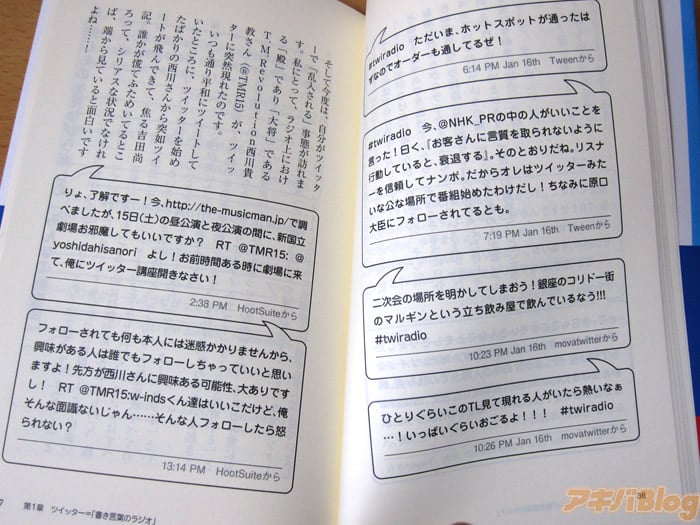 #twiradio　ただいま、ホットスポットが通ったは
ずなのでオーダーも通してるぜ!
6:14 PM Jan 16th　Tweenから
#twiradio　今、@NHK_PRの中の人がいいことを
言った!曰く、『お客さんに言質を取られないように
行動していると、衰退する』。そのとおりだね。リスナ
ーを信頼してナンボ。だからオレはツイッターみた
いな公な場所で番組始めたわけだし!ちなみに原口
大臣にフォローされてるとも。
7:19 PM Jan 16th　Tweenから
二次会の場所を明かしてしまおう!銀座のコリドー街
のマルギンという立ち飲み屋で飲んでいるなう!!!
#twiradio
10:23 PM Jan 16th　movatwitterから
ひとりぐらいこのTL見て現れる人がいたら熱いなぁ
…!いっぱいぐらいおごるよ!!!　#twiradio
10:26 PM Jan 16th　movatwitterから
36
そして今度は、自分がツイッタ
ーで「乱入される」事態が訪れま
す。私にとって、ラジオ上におけ
る「殿」であり「大将」である
T.M.Revolution西川貴
教さん(@TMR15)が、ツイッ
ターに突然現れたのです。
いつも通り平和にツイートして
いたところに、ツイッターを始め
たばかりの西川さんから突如ツイ
ートが飛んできて、焦る吉田尚
記。誰かが慌てふためいてるとこ
ろって、シリアスな状況でなけれ
ば、端から見ていると面白いです
よね……!
りょ、了解ですー!今、http://the-musicman.jp/で調
べましたが、15日(土)の昼公演と夜公演の間に、新国立
劇場お邪魔してもいいですか?　RT @TMR15: @
yoshidahisanori　よし!お前時間ある時に劇場に来
て、俺にツイッター講座開きなさい!
2:38 PM　HootSuiteから
フォローされても何も本人には迷惑かかりませんから、
興味がある人は誰でもフォローしちゃっていいと思い
ますよ!先方が西川さんに興味ある可能性、大ありです
し!　RT @TMR15:w-indsくん達はいいこだけど、俺
そんな面識ないじゃん……そんな人フォローしたら怒
られない?
13:14 PM　HootSuiteから
第1章　ツイッター=「書き言葉のラジオ」
アキバBlog